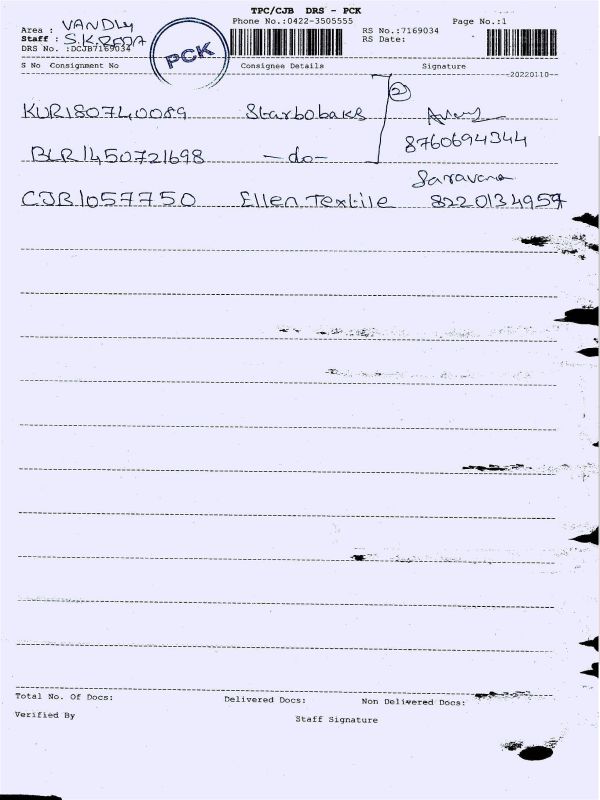 TPC/CJB DRS - PCK
Phone No.:0422-3505555
Page No.:1
Area : VANDLY
Staff : S.K.
DRS No. :DCJB7169034
PCK
RS No.:7169034
RS Date:
S No Consignment No Consignee Details Signature
20220110
KUR180740089 Starbobaks 2
8760694344
BLR1450721698 -do-
Saravana
CJB1057750 Ellen Textile 8220134957
Total No. Of Docs: Delivered Docs: Non Delivered Docs:
Verified By Staff Signature